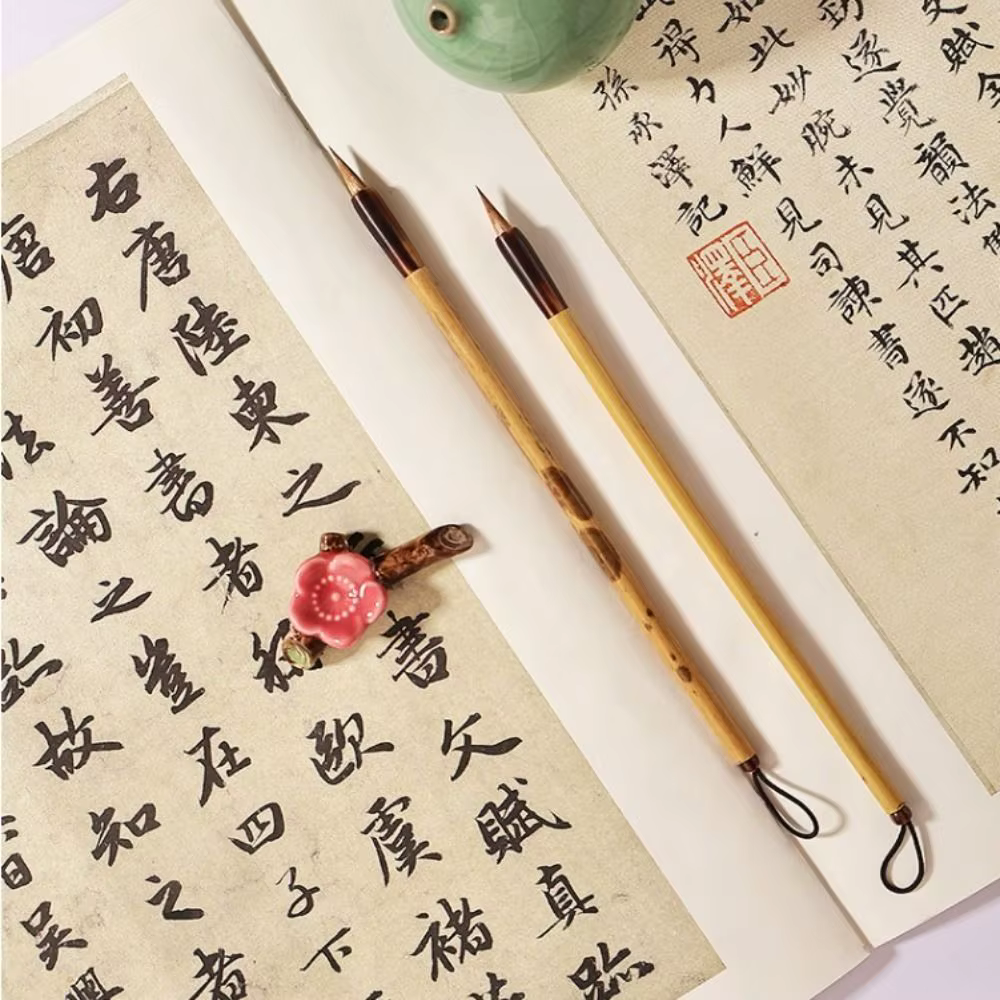 右唐陸柬之書文賦真蹟
唐初善書者稱歐虞褚
法論之豈在四子下
蹟故知之者
吳興
文賦全
勁遂覺韻法
如此妙腕未見其匹趙
得力人鮮見司諫書遂不知
孫承澤記